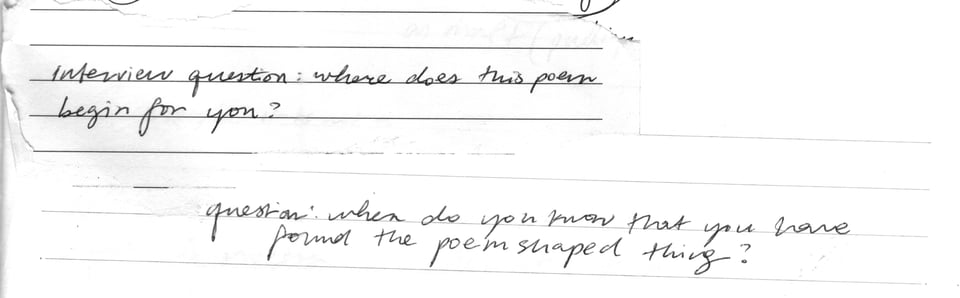 Interview question: where does this poem
begin for you?
question: when do you know that you have
found the poem shaped thing?